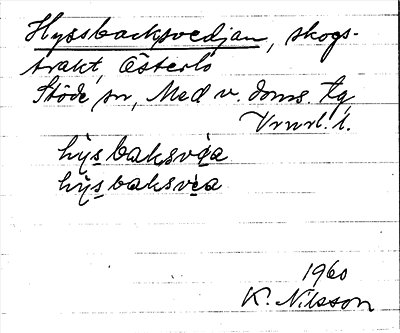 Hyssbacksvedjan, skogs-
trakt, Österlo
Stöde sn, Med v. doms. tg
Vrnrl. l.
hỳs̲baksvèa
hỳs̲baksvèa
1960
K. Nilsson